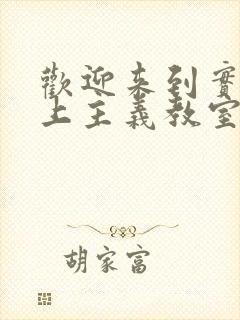 歡迎來到實
上主義教室
胡家富